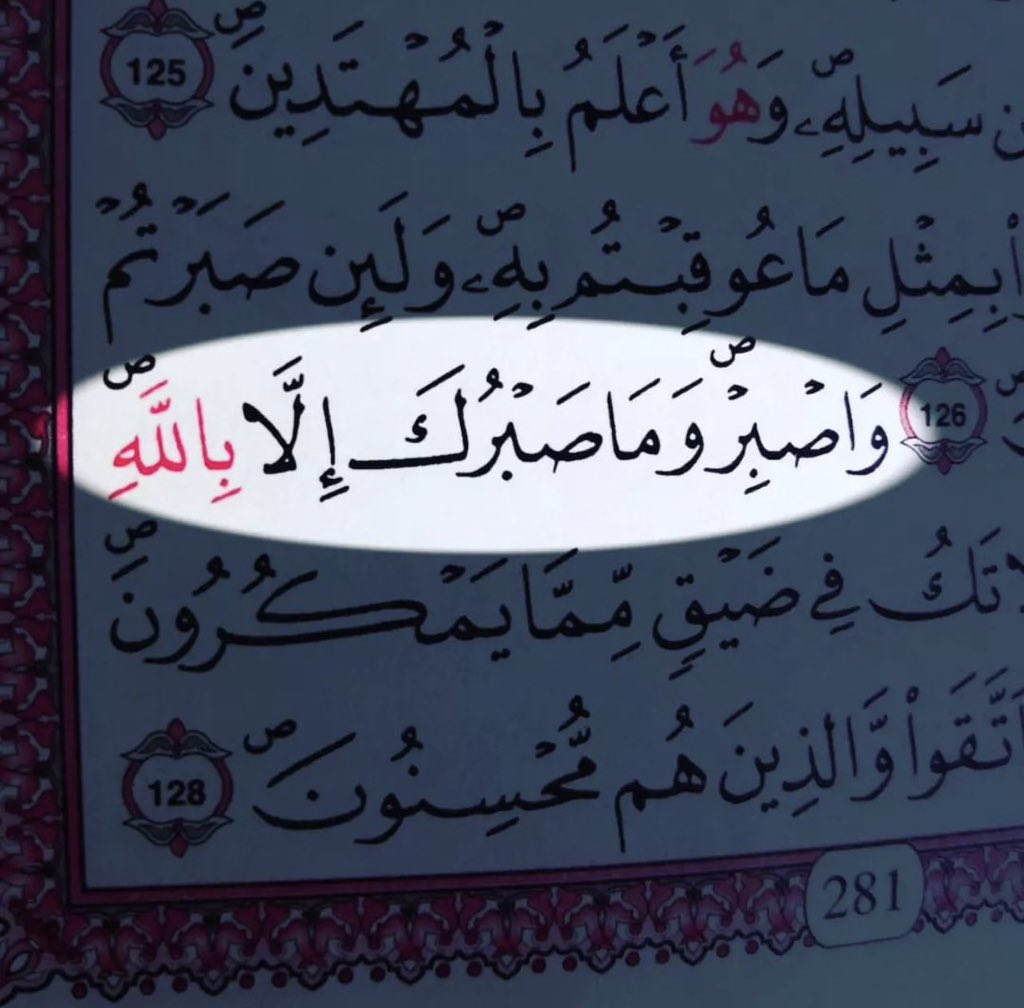 سَبِيلِهِۦۖ وَهُوَ أَعْلَمُ بِالْمُهْتَدِينَۖ 125
بِمِثْلِ مَا عُوقِبْتُم بِهِۦۖ وَلَئِن صَبَرْتُمْ
126 وَاصْبِرْۖ وَمَا صَبْرُكَ إِلَّا بِاللَّهِۖ
تَكُ فِي ضَيْقٍ مِّمَّا يَمْكُرُونَۖ
اتَّقَوا۟ وَّالذِينَ هُم مُّحْسِنُونَۖ 128
281